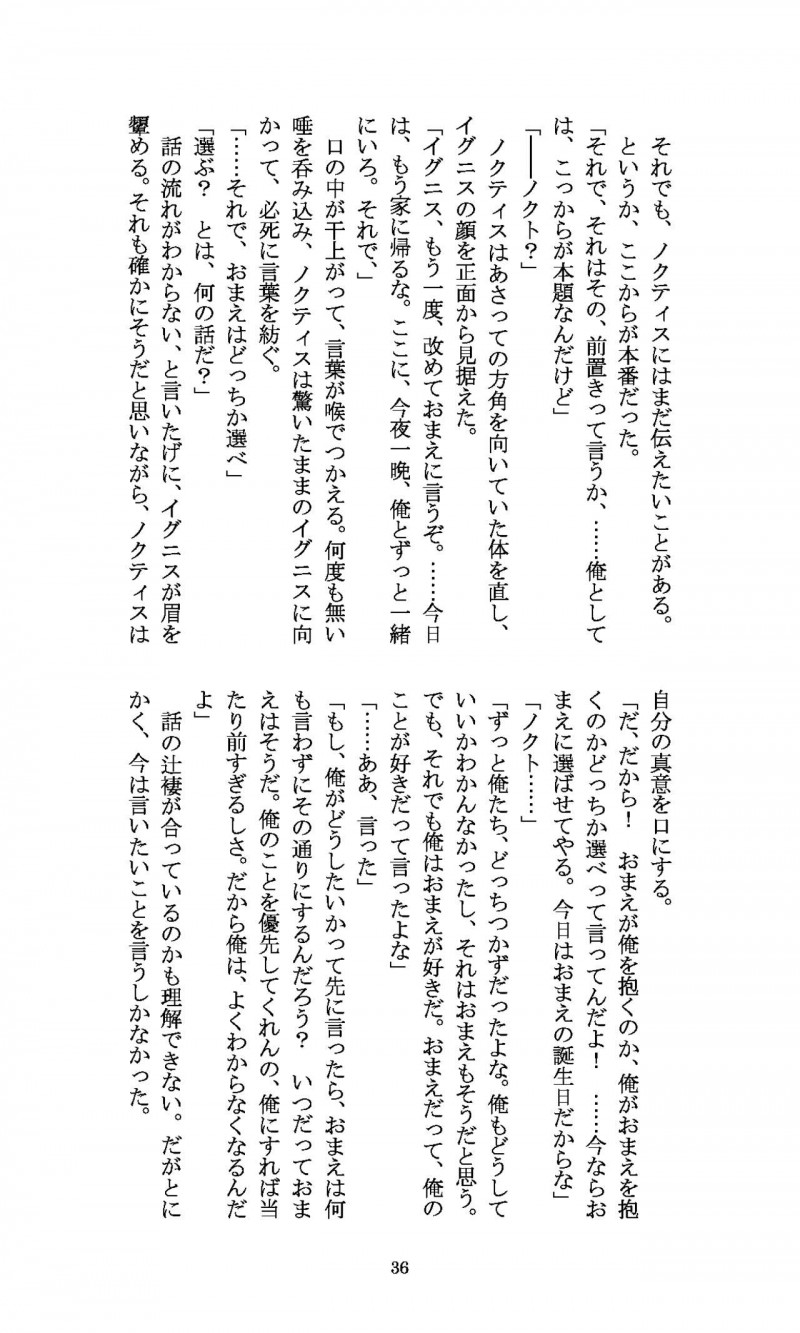 それでも、ノクティスにはまだ伝えたいことがある。
　というか、ここからが本番だった。
「それで、それはその、前置きって言うか、……俺として
は、こっからが本題なんだけど」
「――ノクト？」
　ノクティスはあさっての方角を向いていた体を直し、
イグニスの顔を正面から見据えた。
「イグニス、もう一度、改めておまえに言うぞ。……今日
は、もう家に帰るな。ここに、今夜一晩、俺とずっと一緒
にいろ。それで、」
　口の中が干上がって、言葉が喉でつかえる。何度も無い
唾を呑み込み、ノクティスは驚いたままのイグニスに向
かって、必死に言葉を紡ぐ。
「……それで、おまえはどっちか選べ」
「選ぶ？　とは、何の話だ？」
　話の流れがわからない、と言いたげに、イグニスが眉を
顰める。それも確かにそうだと思いながら、ノクティスは
自分の真意を口にする。
「だ、だから！　おまえが俺を抱くのか、俺がおまえを抱
くのかどっちか選べって言ってんだよ！　……今ならお
まえに選ばせてやる。今日はおまえの誕生日だからな」
「ノクト……」
「ずっと俺たち、どっちつかずだったよな。俺もどうして
いいかわかんなかったし、それはおまえもそうだと思う。
でも、それでも俺はおまえが好きだ。おまえだって、俺の
ことが好きだって言ったよな」
「……ああ、言った」
「もし、俺がどうしたいかって先に言ったら、おまえは何
も言わずにその通りにするんだろう？　いつだっておま
えはそうだ。俺のことを優先してくれんの、俺にすれば当
たり前すぎるしさ。だから俺は、よくわからなくなるんだ
よ」
　話の辻褄が合っているのかも理解できない。だがとに
かく、今は言いたいことを言うしかなかった。
36